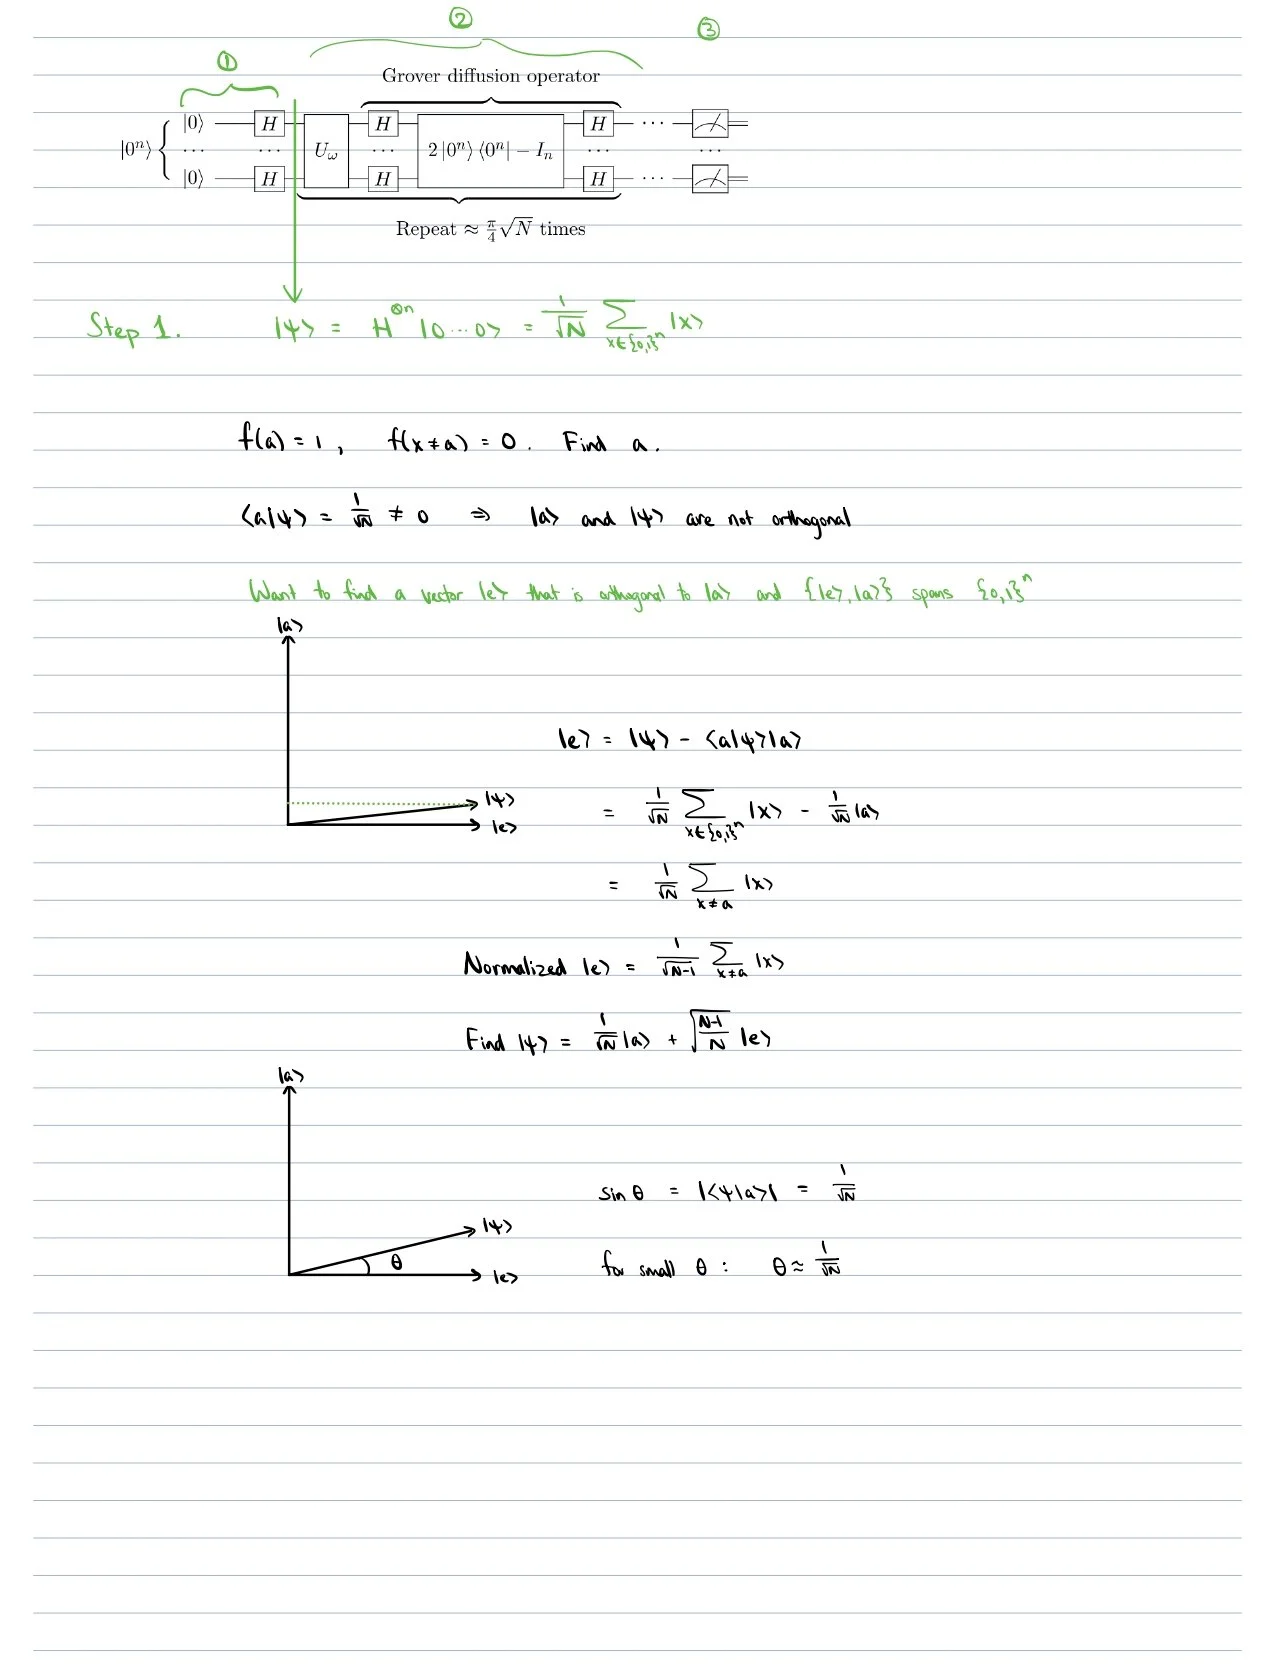 ② ③
①
Grover diffusion operator
|0ⁿ⟩ { |0⟩ H U_ω H 2|0ⁿ⟩⟨0ⁿ| − I_n H ···
··· ··· ··· ··· ···
|0⟩ H H H ···
Repeat ≈ π/4 √N times
Step 1. |ψ⟩ = H^⊗n |0···0⟩ = 1/√N ∑_{x∈{0,1}ⁿ} |x⟩
f(a) = 1, f(x≠a) = 0. Find a.
⟨a|ψ⟩ = 1/√N ≠ 0 ⇒ |a⟩ and |ψ⟩ are not orthogonal
Want to find a vector |e⟩ that is orthogonal to |a⟩ and {|e⟩,|a⟩} spans {0,1}ⁿ
|a⟩
|e⟩ = |ψ⟩ − ⟨a|ψ⟩|a⟩
|ψ⟩
|e⟩
= 1/√N ∑_{x∈{0,1}ⁿ} |x⟩ − 1/√N |a⟩
= 1/√N ∑_{x≠a} |x⟩
Normalized |e⟩ = 1/√(N-1) ∑_{x≠a} |x⟩
Find |ψ⟩ = 1/√N |a⟩ + √((N-1)/N) |e⟩
|a⟩
sin θ = |⟨ψ|a⟩| = 1/√N
|ψ⟩
θ
|e⟩
for small θ : θ ≈ 1/√N